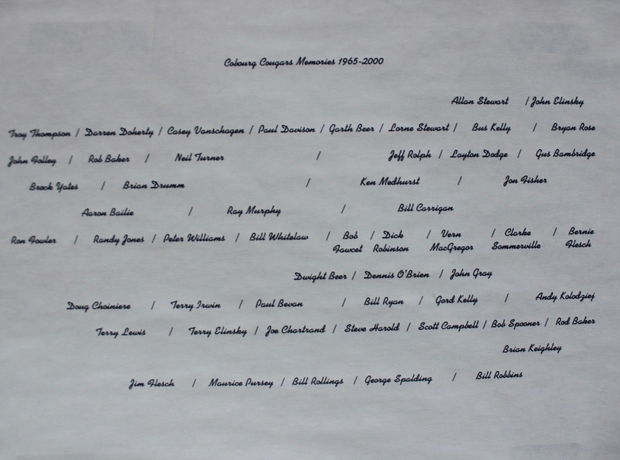 Cobourg Cougars Memories 1965-2000
Allan Stewart / John Elinsky
Troy Thompson / Darren Doherty / Casey Vanschagen / Paul Davison / Garth Beer / Lorne Stewart / Bus Kelly / Bryan Rose
John Folley / Rob Baker / Neil Turner / Jeff Rolph / Layton Dodge / Gus Bambridge
Brock Yates / Brian Drumm / Ken Medhurst / Jon Fisher
Aaron Bailie / Ray Murphy / Bill Carrigan
Ron Fowler / Randy Jones / Peter Williams / Bill Whitelaw / Bob / Dick / Vern / Clarke / Bernie
Fawcet Robinson MacGregor Sommerville Flesch
Dwight Beer / Dennis O'Brien / John Gray
Doug Choiniere / Terry Irwin / Paul Bevan / Bill Ryan / Gord Kelly / Andy Kolodziej
Terry Lewis / Terry Elinsky / Joe Chartrand / Steve Harold / Scott Campbell / Bob Spooner / Rod Baker
Brian Keighley
Jim Flesch / Maurice Pursey / Bill Rollings / George Spalding / Bill Robbins